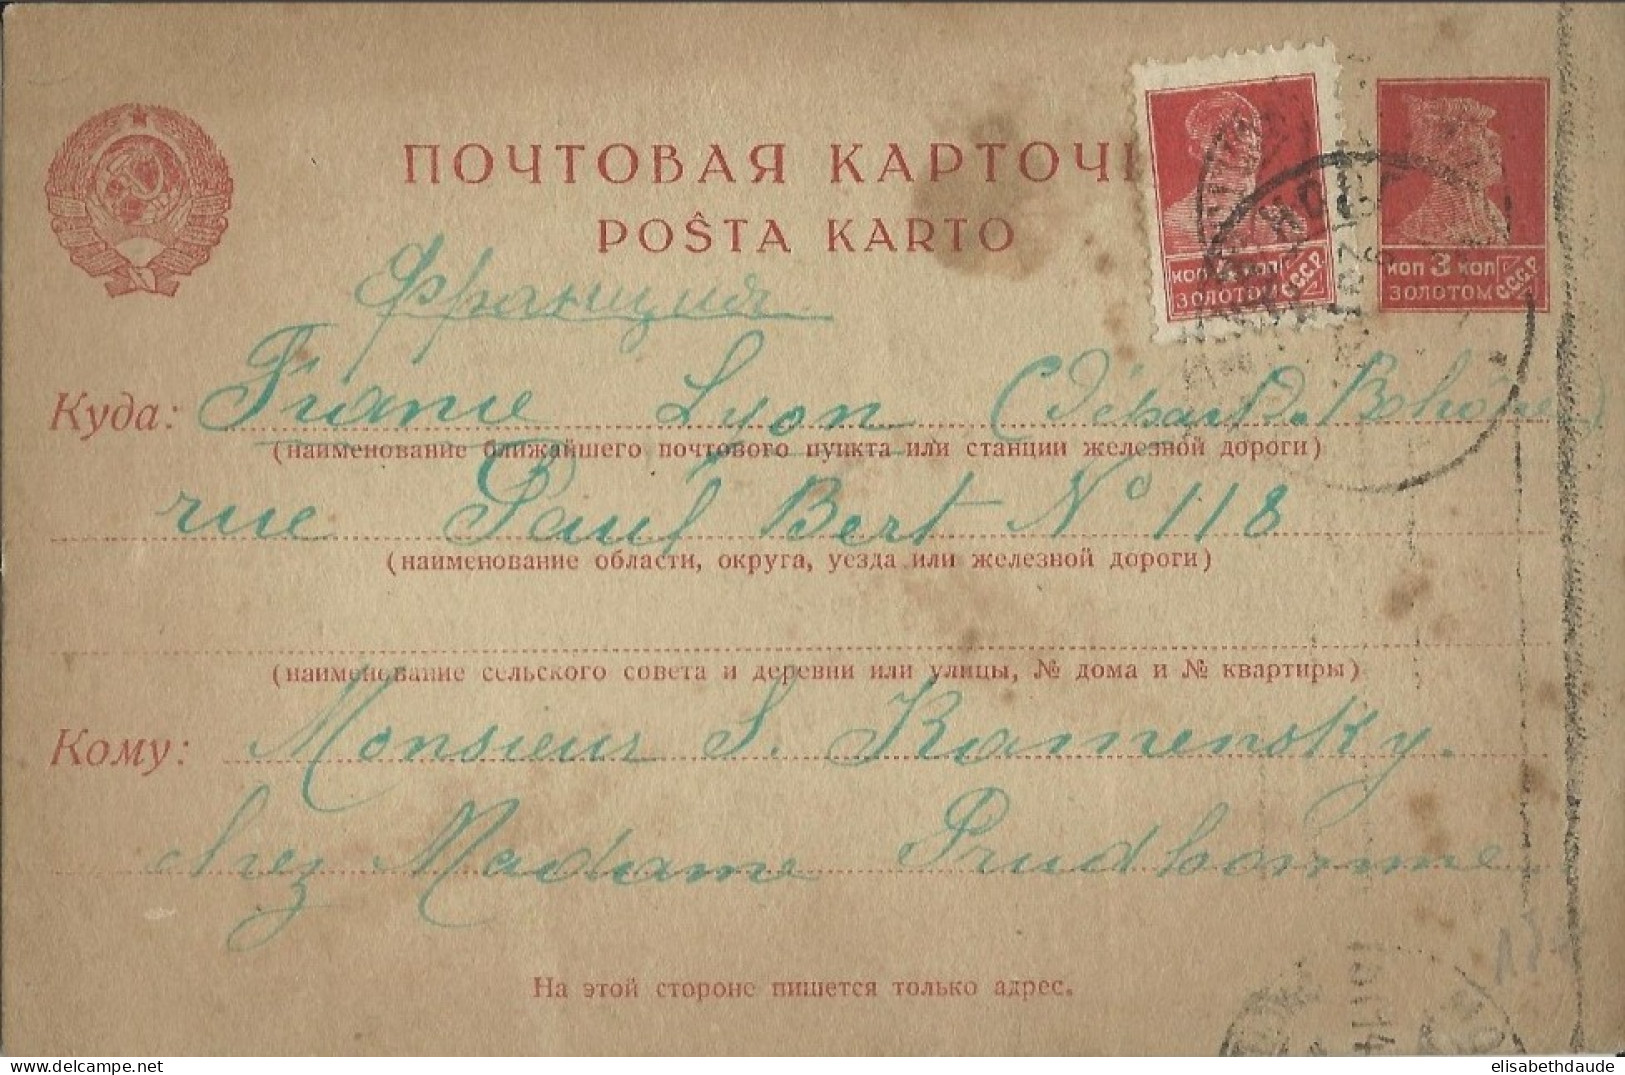 ПОЧТОВАЯ КАРТОЧ
POŜTA KARTO
КОП 4 КОП
ЗОЛОТОМ СССР
КОП 3 КОП
ЗОЛОТОМ С.С.С.Р.
Франция
Куда: France Lyon
(наименование ближайшего почтового пункта или станции железной дороги)
rue Paul Bert No 118
(наименование области, округа, уезда или железной дороги)
(наименование сельского совета и деревни или улицы, № дома и № квартиры)
Кому: Monsieur S. Kamensky.
chez Madame Prudhomme
На этой стороне пишется только адрес.
elisabethdaude